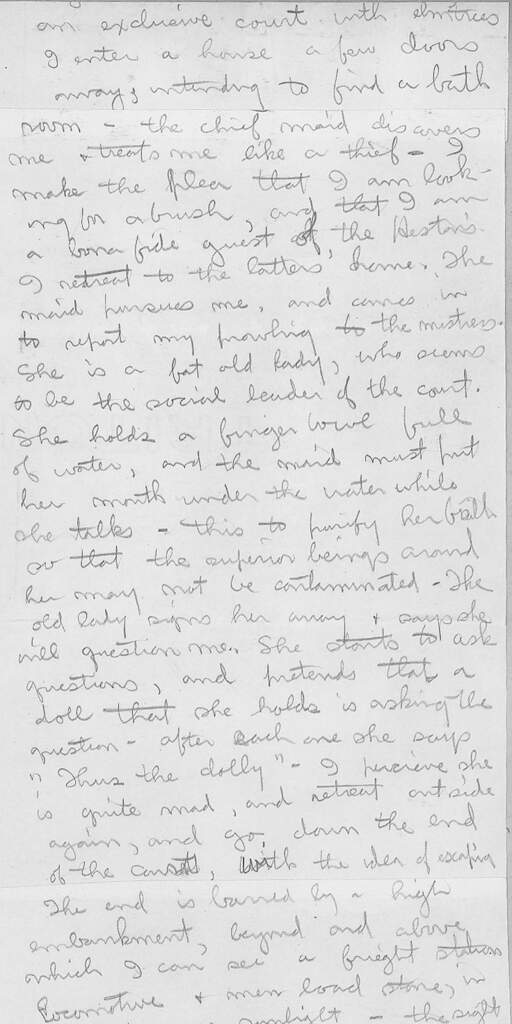 an exclusive court with elmtrees
I enter a house a few doors
away, intending to find a bath
room - the chief maid discovers
me & treats me like a thief - I
make the plea that I am look-
ing for a brush, and that I am
a bona fide guest of the Hestons.
I retreat to the latters' home. The
maid pursues me, and comes in
to report my prowling to the mistress.
She is a fat old lady, who seems
to be the social leader of the court.
She holds a finger bowl full
of water, and the maid must put
her mouth under the water while
she talks - this to purify her breath
so that the superior beings around
her may not be contaminated - The
old lady signs her away & says she
will question me. She starts to ask
questions, and pretends that a
doll that she holds is asking the
question - after each one she says
"Thus the dolly" - I percieve she
is quite mad, and retreat outside
again, and go, down the end
of the court, with the idea of escaping
The end is barred by a high
embankment, beyond and above
which I can see a frieght station
locomotive & men load stone, in
sunlight - the sight